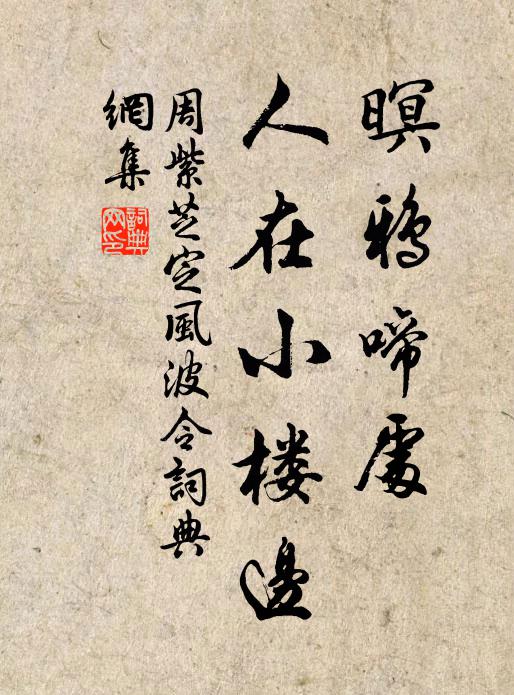 暝鴉啼處
人在小楼邊
周紫芝定風波令詞典
網集
詞典網印